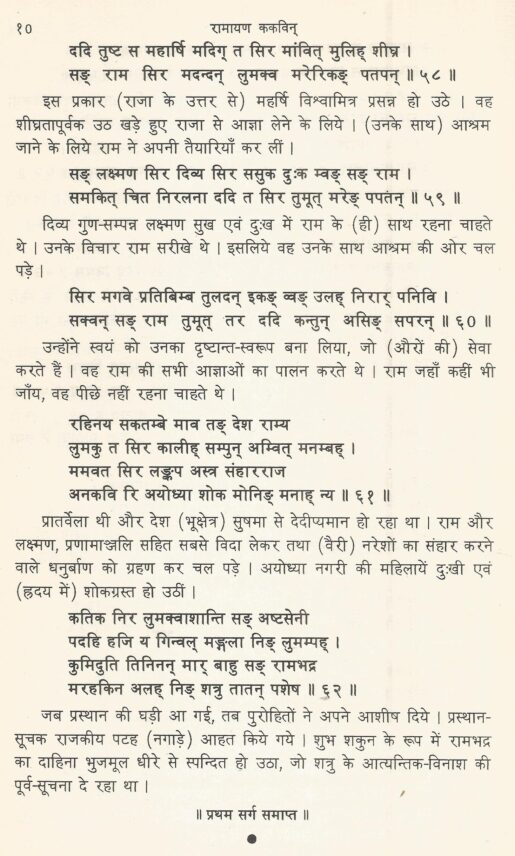 १०
रामायण ककविन्
ददि तुष्ट स महार्षि मदिग् त सिर मांवित् मुलिह् शीघ्र ।
सङ् राम सिर मदन्दन् लुमक्व मरेरिकङ् पतपन् ॥ ५८ ॥
इस प्रकार (राजा के उत्तर से) महर्षि विश्वामित्र प्रसन्न हो उठे । वह
शीघ्रतापूर्वक उठ खड़े हुए राजा से आज्ञा लेने के लिये । (उनके साथ) आश्रम
जाने के लिये राम ने अपनी तैयारियाँ कर लीं ।
सङ् लक्ष्मण सिर दिव्य सिर ससुक दुःक म्वङ् सङ् राम ।
समकित् चित्त निरलना ददि त सिर तुमूत् मरेङ् पपतन् ॥ ५९ ॥
दिव्य गुण-सम्पन्न लक्ष्मण सुख एवं दुःख में राम के (ही) साथ रहना चाहते
थे । उनके विचार राम सरीखे थे । इसलिये वह उनके साथ आश्रम की ओर चल
पड़े ।
सिर मगवे प्रतिबिम्ब तुलदन् इकङ् व्वङ् उलह् निरार् पनिवि ।
सक्वन् सङ् राम तुमूत् तर ददि कन्तुन् असिङ् सपरन् ॥ ६० ॥
उन्होंने स्वयं को उनका दृष्टान्त-स्वरूप बना लिया, जो (औरों की) सेवा
करते हैं । वह राम की सभी आज्ञाओं का पालन करते थे । राम जहाँ कहीं भी
जाँय, वह पीछे नहीं रहना चाहते थे ।
रहिनय सकतम्बे माव तङ् देश राम्य
लुमकु त सिर कालीह् सम्पुन् अम्वित् मनम्बह् ।
ममवत सिर लङ्कप अस्त्र संहारराज
अनकवि रि अयोध्या शोक मोनिङ् मनाह् न्य ॥ ६१ ॥
प्रातर्वेला थी और देश (भूक्षेत्र) सुषमा से देदीप्यमान हो रहा था । राम और
लक्ष्मण, प्रणामाञ्जलि सहित सबसे विदा लेकर तथा (वैरी) नरेशों का संहार करने
वाले धनुर्बाण को ग्रहण कर चल पड़े । अयोध्या नगरी की महिलायें दुःखी एवं
(हृदय में) शोकग्रस्त हो उठीं ।
कतिक निर लुमक्वाशान्ति सङ् अष्टसेनी
पदहि हजि य गिन्वल् मङ्गला निङ् लुमम्पह् ।
कुमिदुति तिनिनन् मार् बाहु सङ् रामभद्र
मरहकिन अलह् निङ् शत्रु तातन् पशेष ॥ ६२ ॥
जब प्रस्थान की घड़ी आ गई, तब पुरोहितों ने अपने आशीष दिये । प्रस्थान-
सूचक राजकीय पटह (नगाड़े) आहत किये गये । शुभ शकुन के रूप में रामभद्र
का दाहिना भुजमूल धीरे से स्पन्दित हो उठा, जो शत्रु के आत्यन्तिक-विनाश की
पूर्व-सूचना दे रहा था ।
॥ प्रथम सर्ग समाप्त ॥